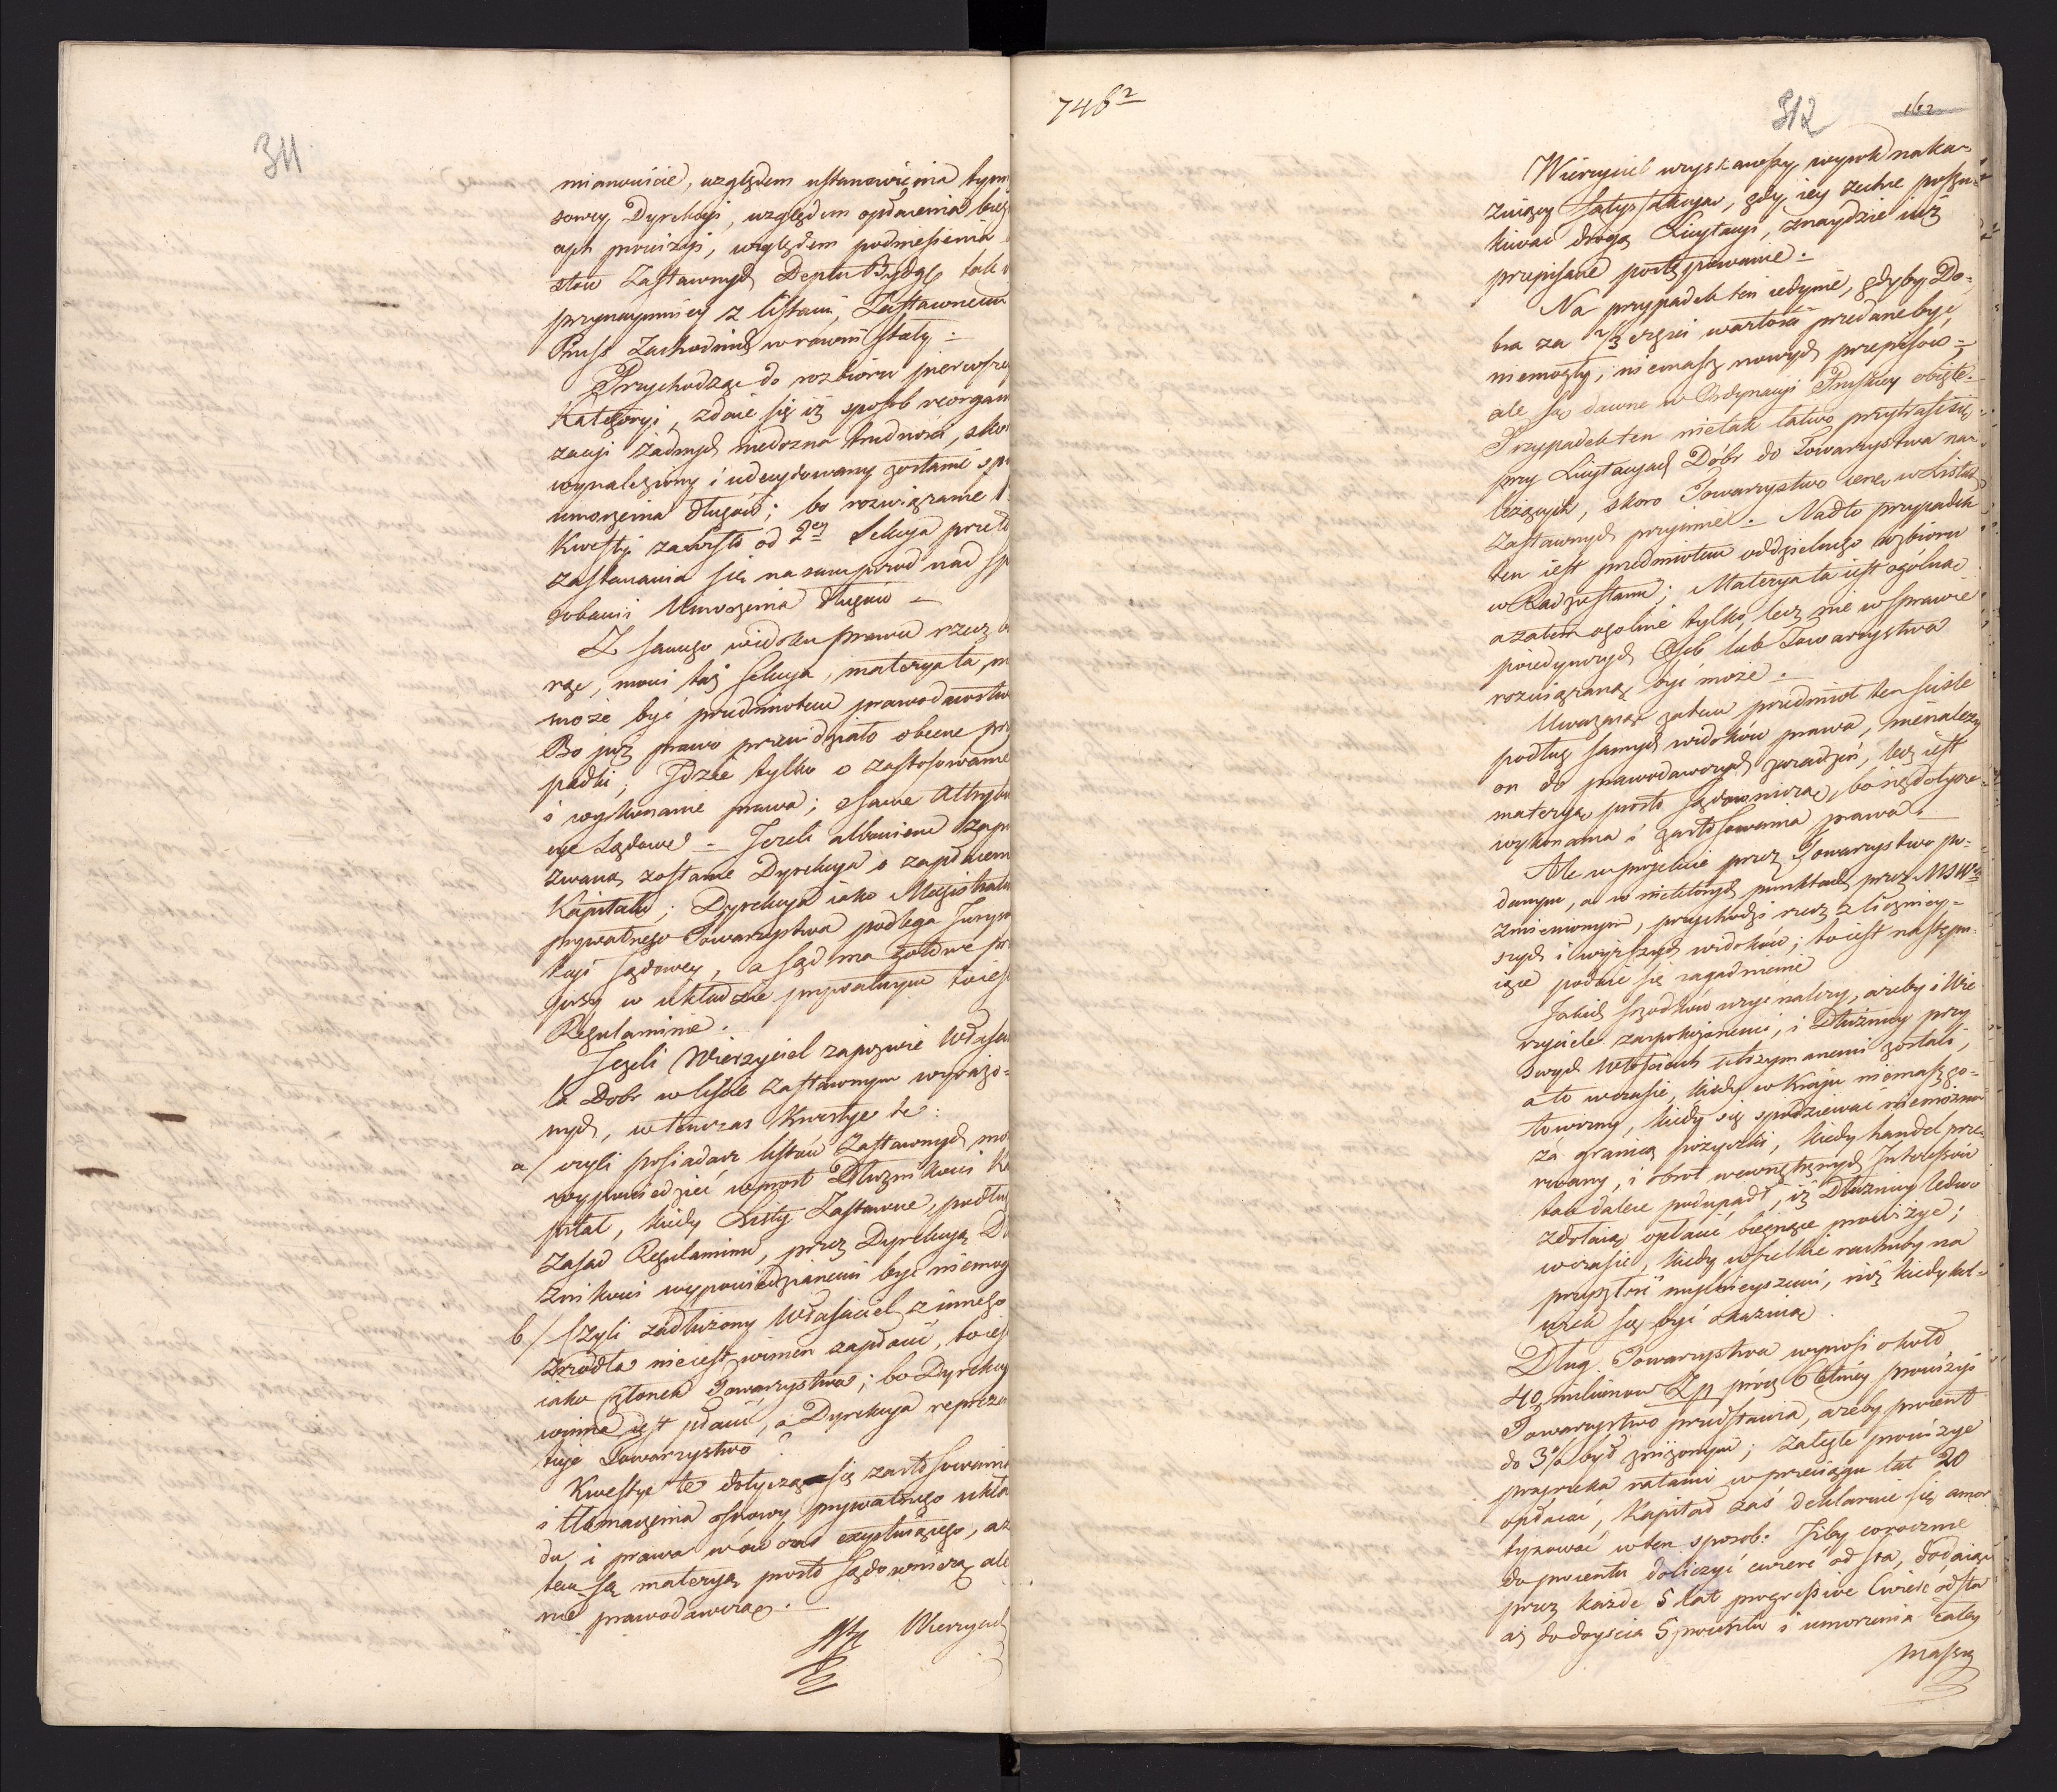 311
mianowicie, względem ustanowienia tym
sowey Dyrekcyi, względem opłacenia bież
cych prowizyi, względem podniesienia
stów Zastawnych Deptu Bydg: tak
przynaymniey z listami Zastawnemi
Pruss Zachodnich w równi stały. —
Przychodząc do rozbioru pierwszey
Kategoryi, zdaie się iż sposób reorgani
zacyi żadnych niedozna trudności, skoro
wynaleziony i udecydowany zostanie sp
umorzenia długów; bo rozwiązanie 1.
Kwestyi zawisło od 2ey Sekcya przeto
zastanawia się na samprzód nad sp
sobami Umorzenia długów —
Z samego widoku prawa rzecz
rąc, mówi taż Sekcya, materya ta, n
może być przedmiotem prawodawstwa
Bo już prawo przewidziało obecne przy
padki; Idzie tylko o zastosowanie
i wykonanie prawa; same Attrybu
cye Sądowe — Jeżeli albowiem zapo
zwaną zostanie Dyrekcya o zapłacenie
Kapitału; Dyrekcya iako Magistratura
prywatnego Towarzystwa podlega Juryzd
kcyi sądowey, a sąd ma gotowe prze
pisy w układzie prywatnym to iest
Regulaminie.
Jeżeli Wierzyciel zapozwie Właścicie
la Dóbr w liście zastawnym wyrażo=
nych, wtenczas kwestye te:
a/ czyli posiadacz listów Zastawnych, mo
wypowiedzieć wprost Dłużnikowi Ka
pitał, kiedy Listy Zastawne, podług
zasad Regulaminu, przez Dyrekcyą Dłu
żnikowi wypowiedzianemi być niemogą
b/ Czyli zadłużony Właściciel z innego
źrzódła nieiest winien zapłacić, to iest
iako Członek Towarzystwa; bo Dyrekcya
winna iest płacić, a Dyrekcya reprezen
tuje Towarzystwo?
Kwestye te dotyczą się zastosowania
i tłómaczenia osnowy prywatnego ukła
du, i prawa wówczas exystuiącego, a z
tem są materyą prosto sądowniczą ale
nie prawodawczą. —
Wierzyciel
746²
312
162
Wierzyciel uzyskawszy wyrok naka=
zuiący satysfakcyą, gdy iey zechce poszu=
kiwać drogą Licytacyi, znaydzie iuż
przepisane postępowanie. —
Na przypadek ten iedynie, gdyby Do=
bra za 2/3 części wartości przedane być
niemogły, niemasz nowych przepisów =
ale są dawne w Ordynacyi Pruskiey obięte.
Przypadek ten nietak łatwo przytrafi się
przy Licytacyach Dóbr do Towarzystwa na=
leżących, skoro Towarzystwo cenę w Listach
Zastawnych przyimie. — Nadto przypadek
ten iest przedmiotem oddzielnego rozbioru
w Radzie Stanu; Materya ta iest ogólna
a zatem ogólnie tylko, lecz nie w sprawie
poiedynczych Osób lub Towarzystwa
rozwiązaną być może. —
Uważaiąc zatem przedmiot ten ściśle
podług samych widoków prawa, nienależy
on do prawodawczych zaradzeń, lecz iest
materyą prosto sądowniczą, bo się dotycze
wykonania i zastosowania prawa. —
Ale w projekcie przez Towarzystwo po=
danym, a w niektórych punktach przez MSW
zmienionym, przychodzi rzecz z liczniey=
szych i wyższych widoków; to iest następu=
iące podaie się zagadnienie
Jakich srzodków użyć należy, ażeby i Wie
rzyciele zaspokojonemi, i Dłużnicy przy
swych Włościach utrzymanemi zostali,
a to w czasie, kiedy w Kraju niemasz go=
towizny, kiedy się spodziewać niemożna
zagranicą pożyczki, kiedy handel prze=
rwany, i obrót wewnętrznych Interessów
tak dalece podupadł, iż Dłużnicy ledwo
zdołaią opłacić bieżące prowizye;
w czasie, kiedy wszelkie rachuby na
przyszłość mylnieyszemi, niż kiedykol=
wiek są być okazuią.
Dług Towarzystwa wynosi około
40 milionów Zp prócz 6 letniey prowizyi
Towarzystwo przedstawia, ażeby procent
do 3% był zniżonym; zaległe prowizye
przyrzeka ratami w przeciągu lat 20
opłacać, Kapitał zaś deklaruie się amor
tyzować w ten sposób: Iżby corocznie
do procentu doliczyć ćwierć od sta, dodaiąc
przez każde 5 lat progressive Ćwierć od sta
aż do doyścia 5 procentu i umorzenia całey
massy